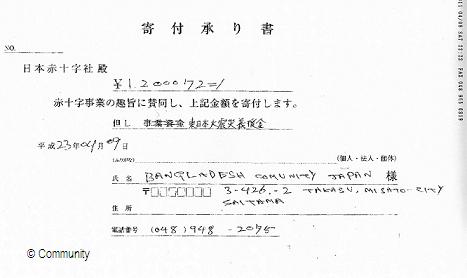 寄付承り書
NO.
日本赤十字社殿
¥1200072=/
赤十字事業の趣旨に賛同し、上記金額を寄付します。
但し 事業資金 東日本大震災義援金
平成23年04月09日
(ふりがな) (個人・法人・団体)
氏名 BANGLADESH COMUNITY JAPAN 様
〒 3-426.-2 TAKASU, MISATO-CITY
SAITAMA
住所
電話番号 (048) 948 -2095
© Community